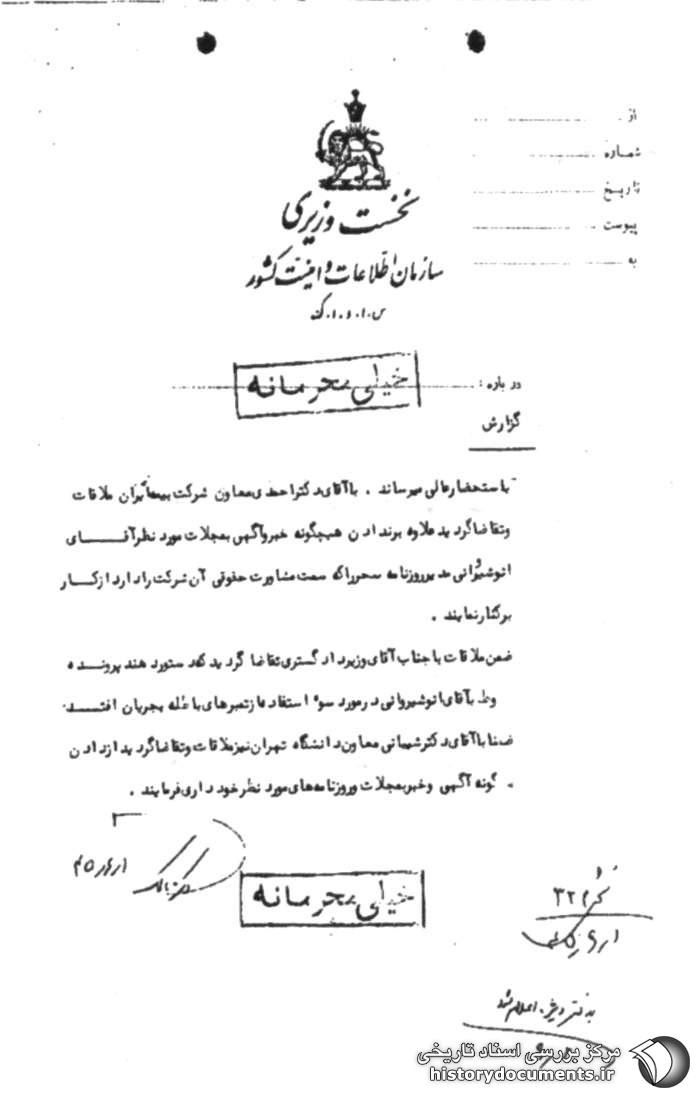 از
شماره
تاریخ
پیوست
به
نخست وزیری
سازمان اطلاعات و امنیت کشور
س.ا.و.ا.ک
خیلی محرمانه
درباره :
گزارش
باستحضارعالی میرساند . باآقای دکتراحمدی معاون شرکت بیمه ایران ملاقات
وتقاضاگردید علاوه برندادن هیچگونه خبروآگهی بمجلات مورد نظرآقــــای
انوشیروانی مدیرروزنامه سحرراکه سمت مشاورت حقوقی آن شرکت رادارد ازکــار
برکنارنمایند .
ضمن ملاقات باجناب آقای وزیردادگستری تقاضا گردید که دستورد هند پرونــده
وط بآقای انوشیروانی درمورد سوء استفاده ازتمبرهای باطله بجریان افتــد
ضمنا باآقای دکترشیبانی معاون دانشگاه تهران نیزملاقات وتقاضاگردید ازدادن
گونه آگهی وخبربمجلات وروزنامه های مورد نظرخود داری فرمایند .
خیلی محرمانه
۳۲
به دفتر ویژه اعلام شد
مرکز بررسی اسناد تاریخی
historydocuments.ir